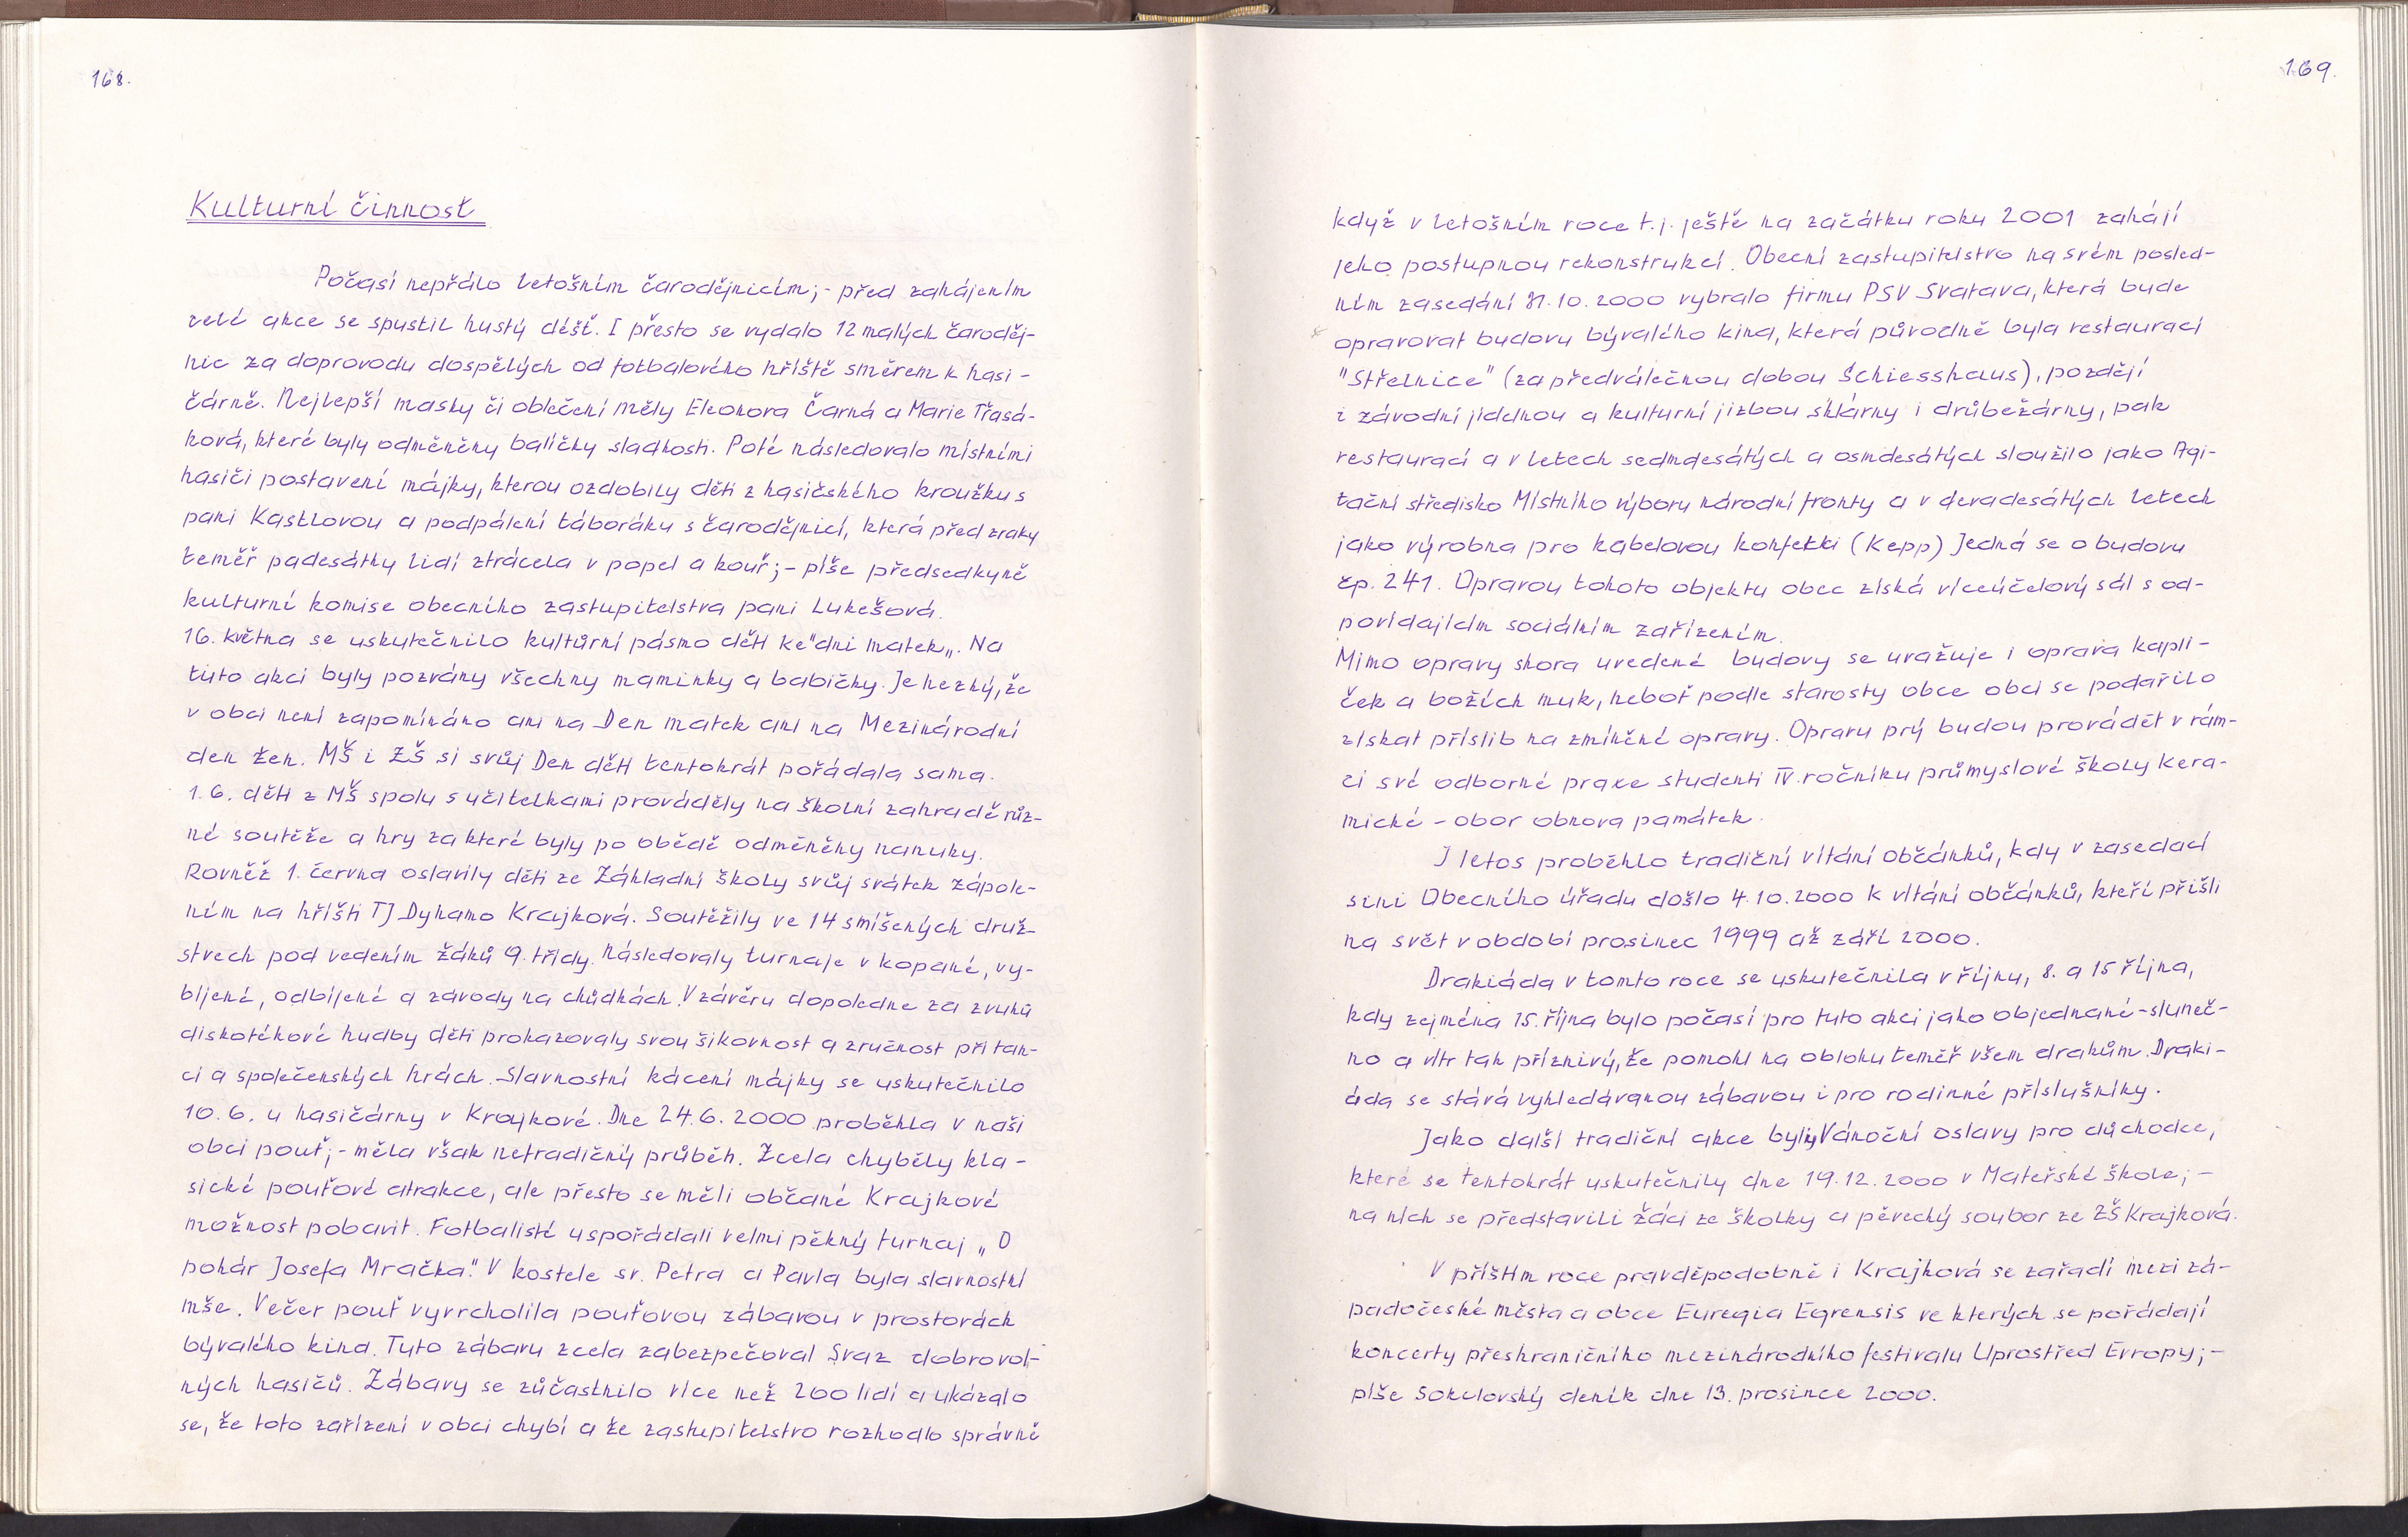 168.
Kulturní činnost
Počasí nepřálo letošním čarodějnicím; - před zahájením
celé akce se spustil hustý déšť. I přesto se vydalo 12 malých čaroděj-
nic za doprovodu dospělých od fotbalového hříště směrem k hasi -
čárně. Nejlepší masky či oblečení měly Eleonora Čarná a Marie Třasá-
ková, které byly odměněny balíčky sladkosti. Poté následovalo místními
hasiči postavení májky, kterou ozdobily děti z hasičského kroužku s
pani Kastlovou a podpálení táboráku s čarodějnicí, která před zraky
teměř padesátky lidí ztrácela v popel a kouř; - píše předsedkyně
kulturní komise obecního zastupitelstva pani Lukešová.
16. května se uskutečnilo kultůrní pásmo dětí ke "dni matek„. Na
tuto akci byly pozvány všechny maminky a babičky. Je hezký, že
v obci není zapomínáno ani na Den matek ani na Mezinárodní
den žen. MŠ i ZŠ si svůj Den dětí tentokrát pořádala sama.
1. 6. děti z MŠ spolu s učitelkami prováděly na školní zahradě růz-
né soutěže a hry za které byly po obědě odměněny nanuky.
Rovněž 1. června oslavily děti ze Základní školy svůj svátek zápole-
ním na hříšti TJ Dynamo Krajková. Soutěžily ve 14 smíšených druž-
stvech pod vedením žáků 9. třídy. Následovaly turnaje v kopané, vy-
bíjené, odbíjené a závody na chůdkách. V závěru dopoledne za zvuků
diskotékové hudby děti prokazovaly svou šikovnost a zručnost při tan-
ci a společenských hrách. Slavnostní kácení májky se uskutečnilo
10. 6. u hasičárny v Krajkové. Dne 24. 6. 2000 proběhla v naší
obci pouť; - měla však netradičný průběh. Zcela chyběly kla -
sické pouťové atrakce, ale přesto se měli občané Krajkové
možnost pobavit. Fotbalisté uspořádali velmi pěkný turnaj „ O
pohár Josefa Mračka." V kostele sv. Petra a Pavla byla slavnostní
mše. Večer pouť vyvrcholila pouťovou zábavou v prostorách
bývalého kina. Tuto zábavu zcela zabezpečoval Svaz dobrovol-
ných hasičů. Zábavy se zůčastnilo více než 200 lidí a ukázalo
se, že toto zařízení v obci chybí a že zastupitelstvo rozhodlo správně
169.
když v letošním roce t. j. ještě na začátku roku 2001 zahájí
jeho postupnou rekonstrukcí. Obecní zastupitelstvo na svém posled-
ním zasedání 31. 10. 2000 vybralo firmu PSV Svatava, která bude
opravovat budovu bývalého kina, která původně byla restaurací
"Střelnice" (za předválečnou dobou Schiesshaus), pozdějí
i závodní jídelnou a kulturní jizbou sklárny i drůbežárny, pak
restaurací a v letech sedmdesátých a osmdesátých sloužilo jako Agi-
tační středisko Místního výboru národní fronty a v devadesátých letech
jako výrobna pro kabelovou konfekci (Kepp) Jedná se o budovu
čp. 241. Opravou tohoto objektu obec získá víceúčelový sál s od-
povídajícím sociálním zařízením.
Mimo opravy shora uvedené budovy se uvažuje i oprava kapli -
ček a božích muk, neboť podle starosty obce obci se podařilo
získat příslib na zmíněné opravy. Opravu prý budou provádět v rám-
ci své odborné praxe studenti IV. ročníku průmyslové školy kera-
mické - obor obnova památek.
I letos proběhlo tradiční vítání občánků, kdy v zasedací
síni Obecního úřadu došlo 4. 10. 2000 k vítání občánků, kteří přišli
na svět v období prosinec 1999 až září 2000.
Drakiáda v tomto roce se uskutečnila v říjnu, 8. a 15 října,
kdy zejména 15. října bylo počasí pro tuto akci jako objednané - sluneč-
no a vítr tak příznivý, že pomohl na oblohu teměř všem drakům. Draki -
áda se stává vyhledávanou zábavou i pro rodinné příslušníky.
Jako další tradiční akce byly Vánoční oslavy pro důchodce,
které se tentokrát uskutečnily dne 19. 12. 2000 v Mateřské škole; -
na ních se představili žáci ze školky a pěvecký soubor ze ZŠ Krajková.
V příštím roce pravděpodobně i Krajková se zařadí mezi zá-
padočeské města a obce Euregia Egrensis ve kterých se pořádají
koncerty přeshraničního mezinárodního festivalu Uprostřed Evropy; -
píše Sokolovský deník dne 13. prosince 2000.